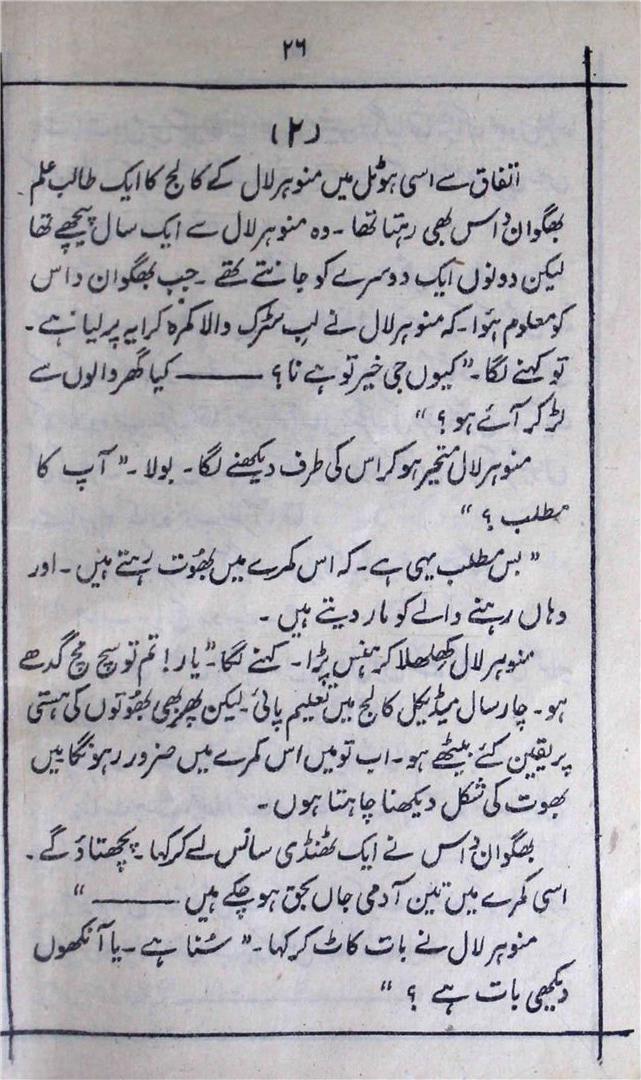 ۲۶
(۲)
اتفاق سے اسی ہوٹل میں منوہر لال کے کالج کا ایک طالب علم
بھگوان داس بھی رہتا تھا ۔ وہ منوہر لال سے ایک سال پیچھے تھا
لیکن دونوں ایک دوسرے کو جانتے تھے ۔ جب بھگوان داس
کو معلوم ہؤا ۔ کہ منوہر لال نے لب سٹرک والا کمرہ کرایہ پر لیا ہے ۔
تو کہنے لگا ۔ " کیوں جی خیر تو ہے نا ؟ ——— کیا گھر والوں سے
لڑ کر آئے ہو ؟ "
منوہر لال متحیر ہو کر اس کی طرف دیکھنے لگا ۔ بولا ۔ " آپ کا
مطلب ؟ "
" بس مطلب یہی ہے ۔ کہ اس کمرے میں بھُوت رہتے ہیں ۔ اور
وہاں رہنے والے کو مار دیتے ہیں ۔
منوہر لال کھلکھلا کر ہنس پڑا ۔ کہنے لگا ۔ " یار ! تم تو سچ مچ گدھے
ہو ۔ چار سال میڈیکل کالج میں تعلیم پائی ۔ لیکن پھر بھی بھُوتوں کی ہستی
پر یقین کئے بیٹھے ہو ۔ اب تو میں اس کمرے میں ضرور رہونگا میں
بھوت کی شکل دیکھنا چاہتا ہوں ۔
بھگوان داس نے ایک ٹھنڈی سانس لے کر کہا ۔ پچھتاؤ گے ۔
اسی کمرے میں تین آدمی جاں بحق ہو چکے ہیں ——— "
منوہر لال نے بات کاٹ کر کہا ۔ " سُنا ہے ۔ یا آنکھوں
دیکھی بات ہے ؟ "